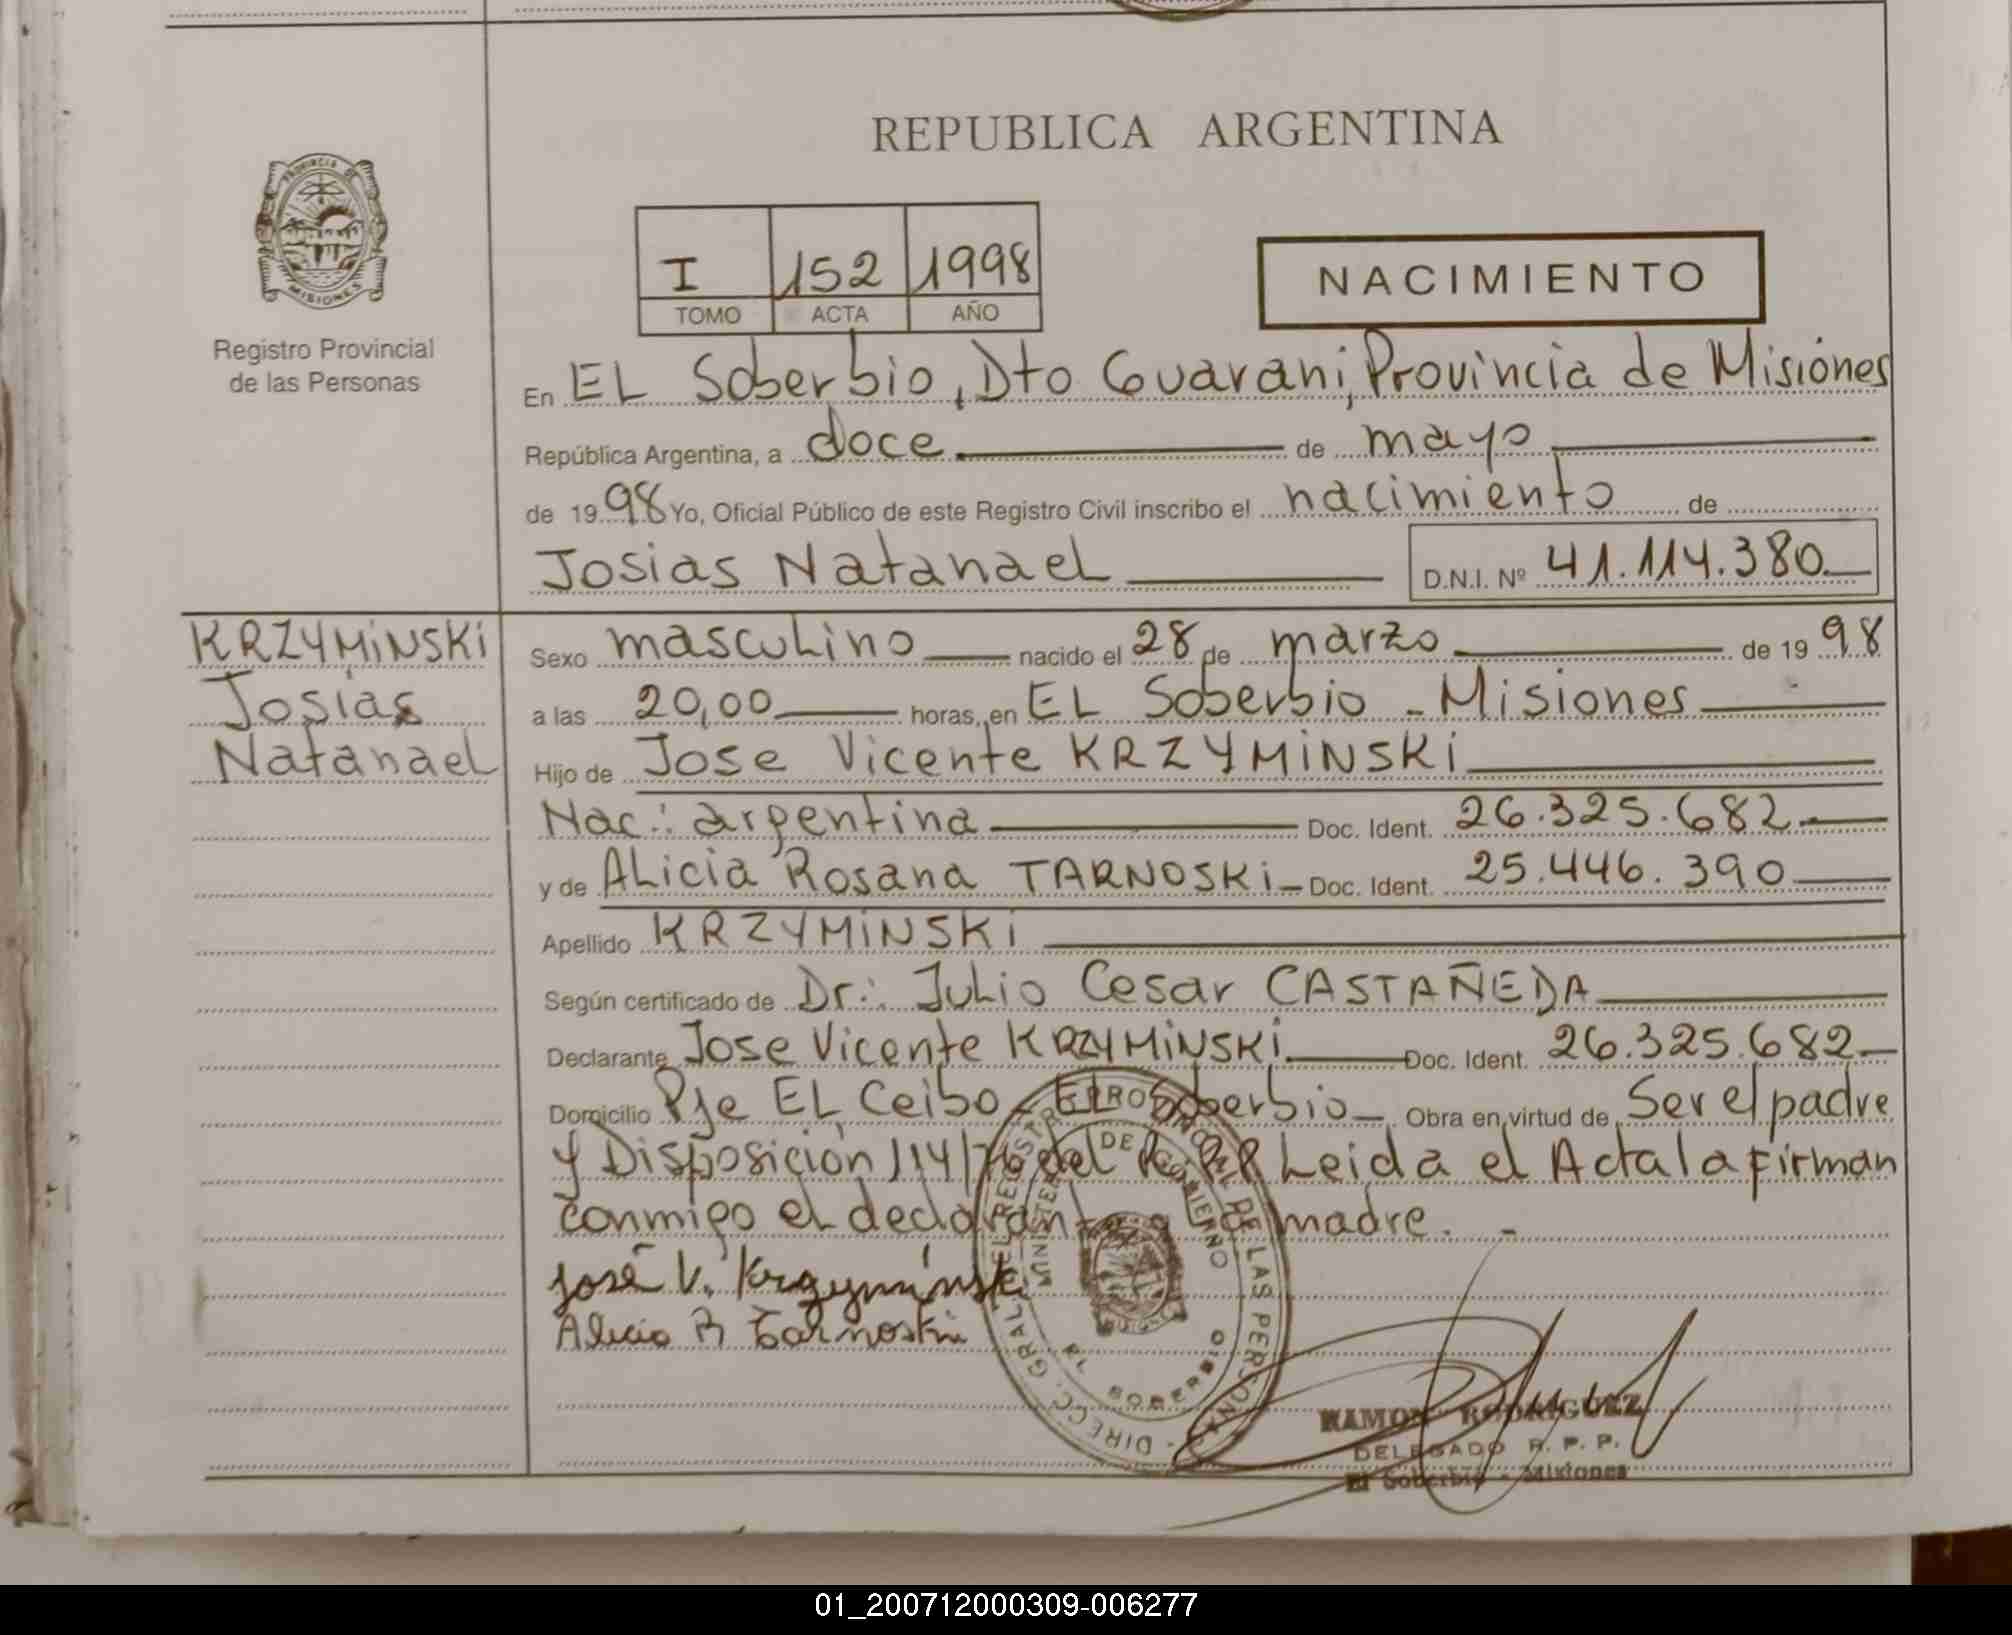 REPUBLICA ARGENTINA
PROVINCIA DE
MISIONES
Registro Provincial
de las Personas
I 152 1998
TOMO ACTA AÑO
NACIMIENTO
En EL Soberbio, Dto Guarani, Provincia de Misiones
República Argentina, a doce de mayo
de 1998 Yo, Oficial Público de este Registro Civil inscribo el nacimiento de
Josias Natanael D.N.I. Nº 41.114.380
KRZYMINSKI
Josias
Natanael
Sexo masculino nacido el 28 de marzo de 1998
a las 20,00 horas, en EL Soberbio - Misiones
Hijo de Jose Vicente KRZYMINSKI
Nac.: argentina Doc. Ident. 26.325.682
y de ALicia Rosana TARNOSKI Doc. Ident. 25.446.390
Apellido KRZYMINSKI
Según certificado de Dr.: Julio Cesar CASTAÑEDA
Declarante Jose Vicente KRZYMINSKI Doc. Ident. 26.325.682
Domicilio Pje EL Ceibo - EL Soberbio Obra en virtud de Ser el padre
y Disposición 114/76 del Leida el Acta la firman
conmigo el declarante y la madre.
José V. Krzyminski
Alicia R Tarnoski
DIRECC. GRAL. DEL REGISTRO PROVINCIAL DE LAS PERSONAS
MINISTERIO DE GOBIERNO
EL SOBERBIO
RAMON RODRIGUEZ
DELEGADO R. P. P.
El Soberbio - Misiones
01_200712000309-006277